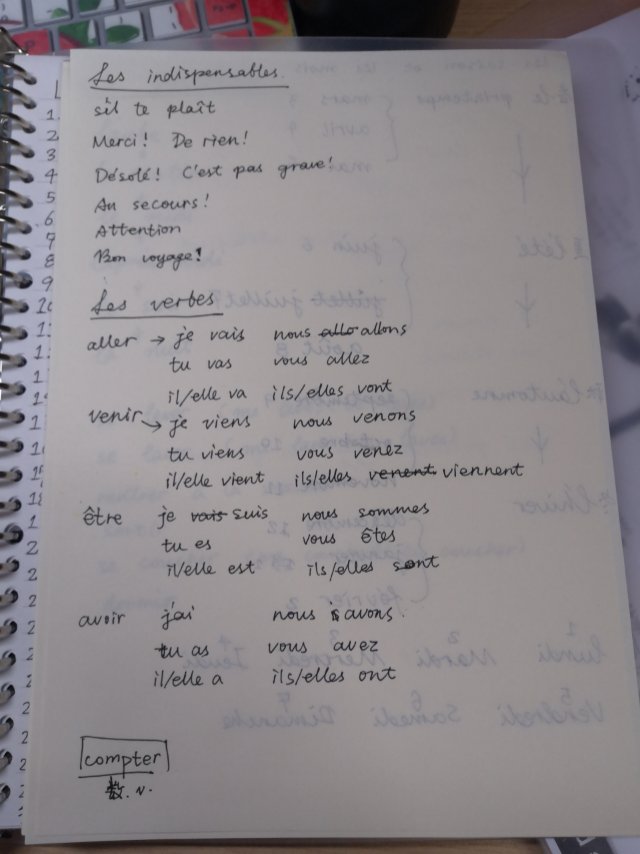 Les indispensables.
s'il te plaît
Merci! De rien!
Désolé! C'est pas grave!
Au secours!
Attention
Bon voyage!
Les verbes
aller → je vais nous allo allons
tu vas vous allez
il/elle va ils/elles vont
venir → je viens nous venons
tu viens vous venez
il/elle vient ils/elles venent viennent
être je vais suis nous sommes
tu es vous êtes
il/elle est ils/elles sont
avoir j'ai nous avons.
tu as vous avez
il/elle a ils/elles ont
compter
数. v.